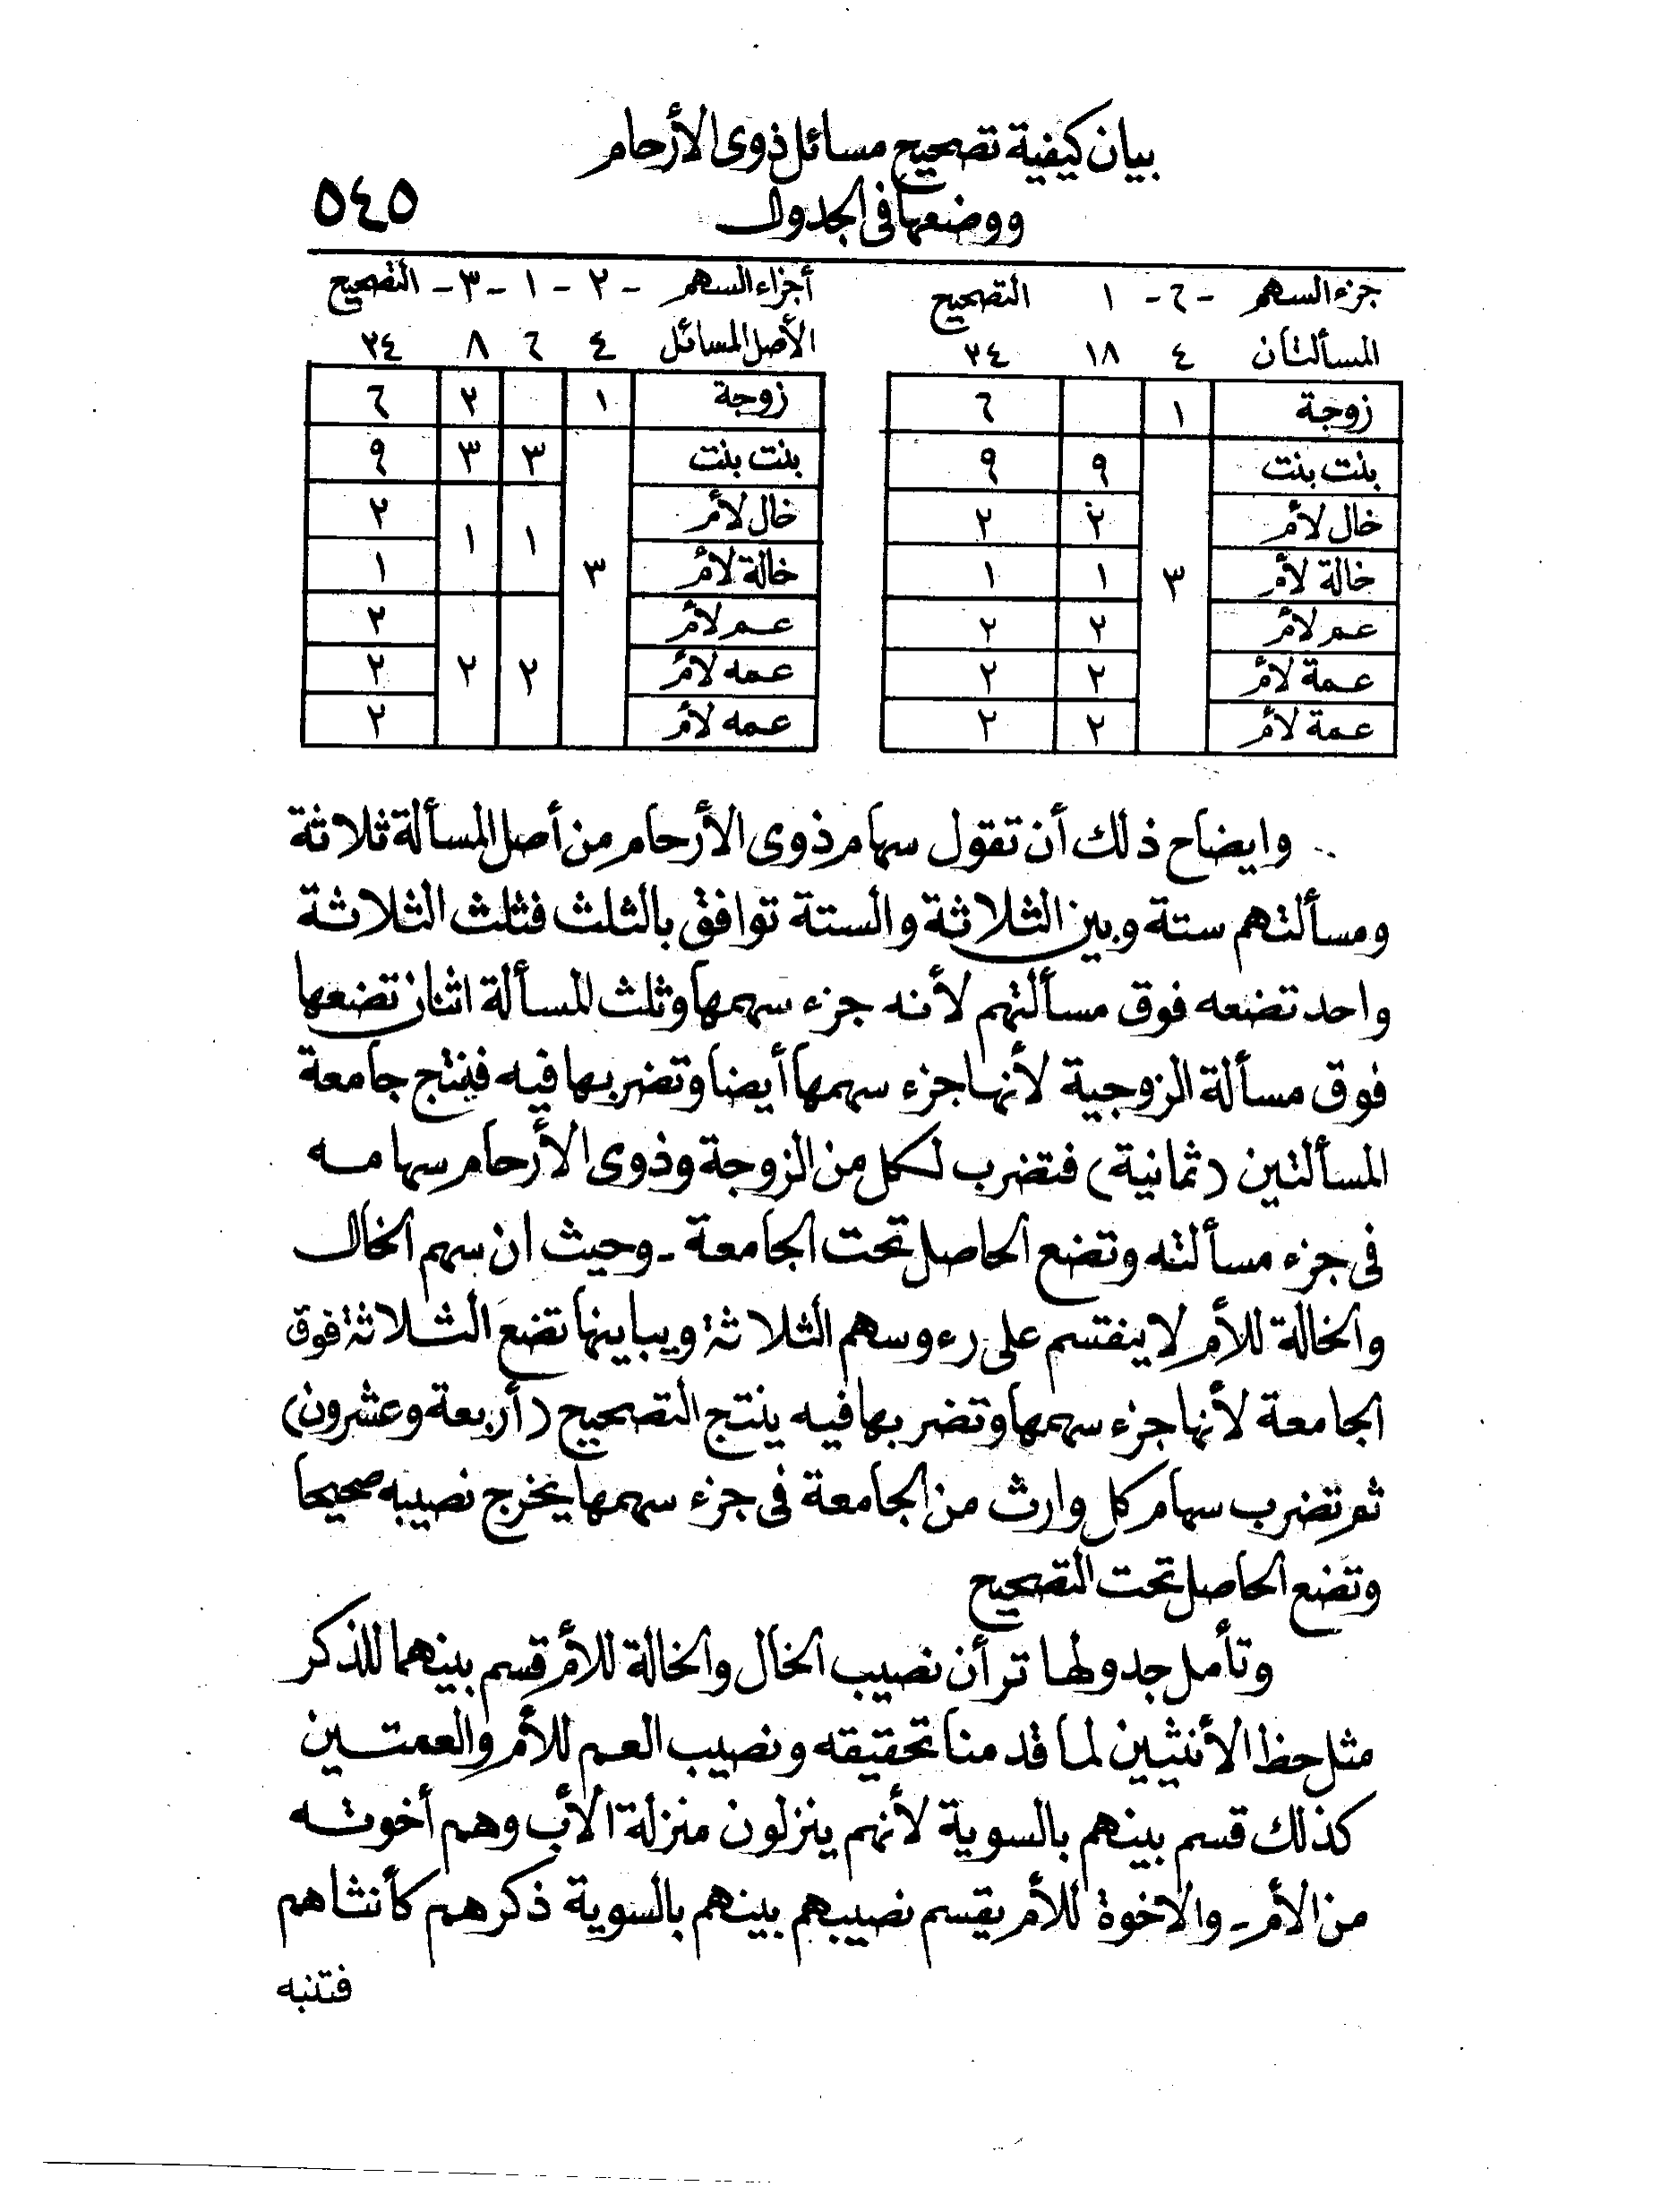 بيان كيفية تصحيح مسائل ذوى الأرحام
ووضعها فى الجدول
٥٤٥
جزء السهم - ٦ - ١ التصحيح
المسألتان ٤ ١٨ ٢٤
زوجة ١ ٦
بنت بنت ٩ ٩
خال لأم ٢ ٢
خالة لأم ٣ ١ ١
عم لأم ٢ ٢
عمة لأم ٢ ٢
عمة لأم ٢ ٢
أجزاء السهم - ٢ - ١ - ٣ - التصحيح
الأصل المسائل ٤ ٦ ٨ ٢٤
زوجة ١ ٢ ٦
بنت بنت ٣ ٣ ٩
خال لأم ١ ١ ٢
خالة لأم ٣ ١
عم لأم ٢
عمه لأم ٢ ٢ ٢
عمه لأم ٢
وايضاح ذلك أن تقول سهام ذوى الأرحام من أصل المسألة ثلاثة
ومسألتهم ستة وبين الثلاثة والستة توافق بالثلث فثلث الثلاثة
واحد تضعه فوق مسألتهم لأنه جزء سهمها وثلث المسألة اثنان تضعها
فوق مسألة الزوجية لأنها جزء سهمها أيضا وتضربها فيه فينتج جامعة
المسألتين (ثمانية) فتضرب لكل من الزوجة وذوى الأرحام سهامه
فى جزء مسألته وتضع الحاصل تحت الجامعة - وحيث ان سهم الخال
والخالة للأم لا ينقسم على رءوسهم الثلاثة ويباينها تضع الثلاثة فوق
الجامعة لأنها جزء سهمها وتضربها فيه ينتج التصحيح (أربعة وعشرون)
ثم تضرب سهام كل وارث من الجامعة فى جزء سهمها يخرج نصيبه صحيحا
وتضع الحاصل تحت التصحيح
وتأمل جدولها تر أن نصيب الخال والخالة للأم قسم بينهما للذكر
مثل حظ الأنثيين لما قدمنا تحقيقه ونصيب العم للأم والعمتين
كذلك قسم بينهم بالسوية لأنهم ينزلون منزلة الأب وهم أخوته
من الأم - والاخوة للأم يقسم نصيبهم بينهم بالسوية ذكرهم كأنثاهم
فتنبه